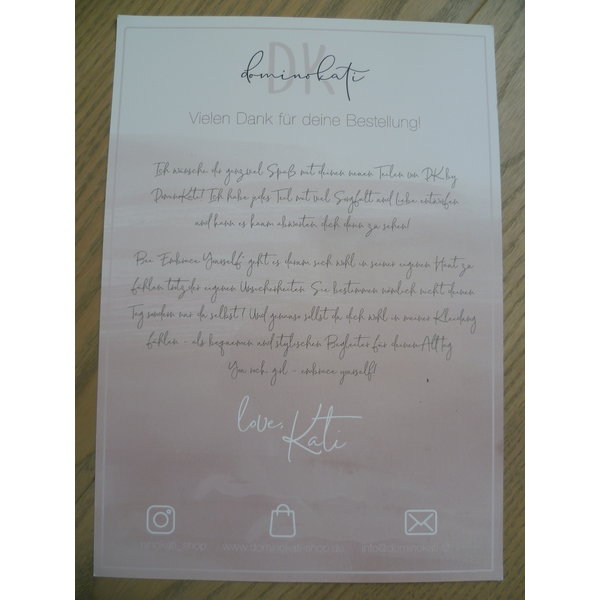 DK
dominokati
Vielen Dank für deine Bestellung!
Ich wünsche dir ganz viel Spaß mit deinen neuen Teilen von DK by
DominoKati! Ich habe jedes Teil mit viel Sorgfalt und Liebe entworfen
und kann es kaum abwarten dich darin zu sehen!
Bei "Embrace Yourself" geht es darum sich wohl in seiner eigenen Haut zu
fühlen trotz der eigenen Unsicherheiten. Sie bestimmen nämlich nicht deinen
Tag sondern nur du selbst! Und genauso sollst du dich wohl in meiner Kleidung
fühlen - als bequemen und stylischen Begleiter für deinen Alltag
You rock, girl - embrace yourself!
love,
Kati
www.dominokati-shop.de